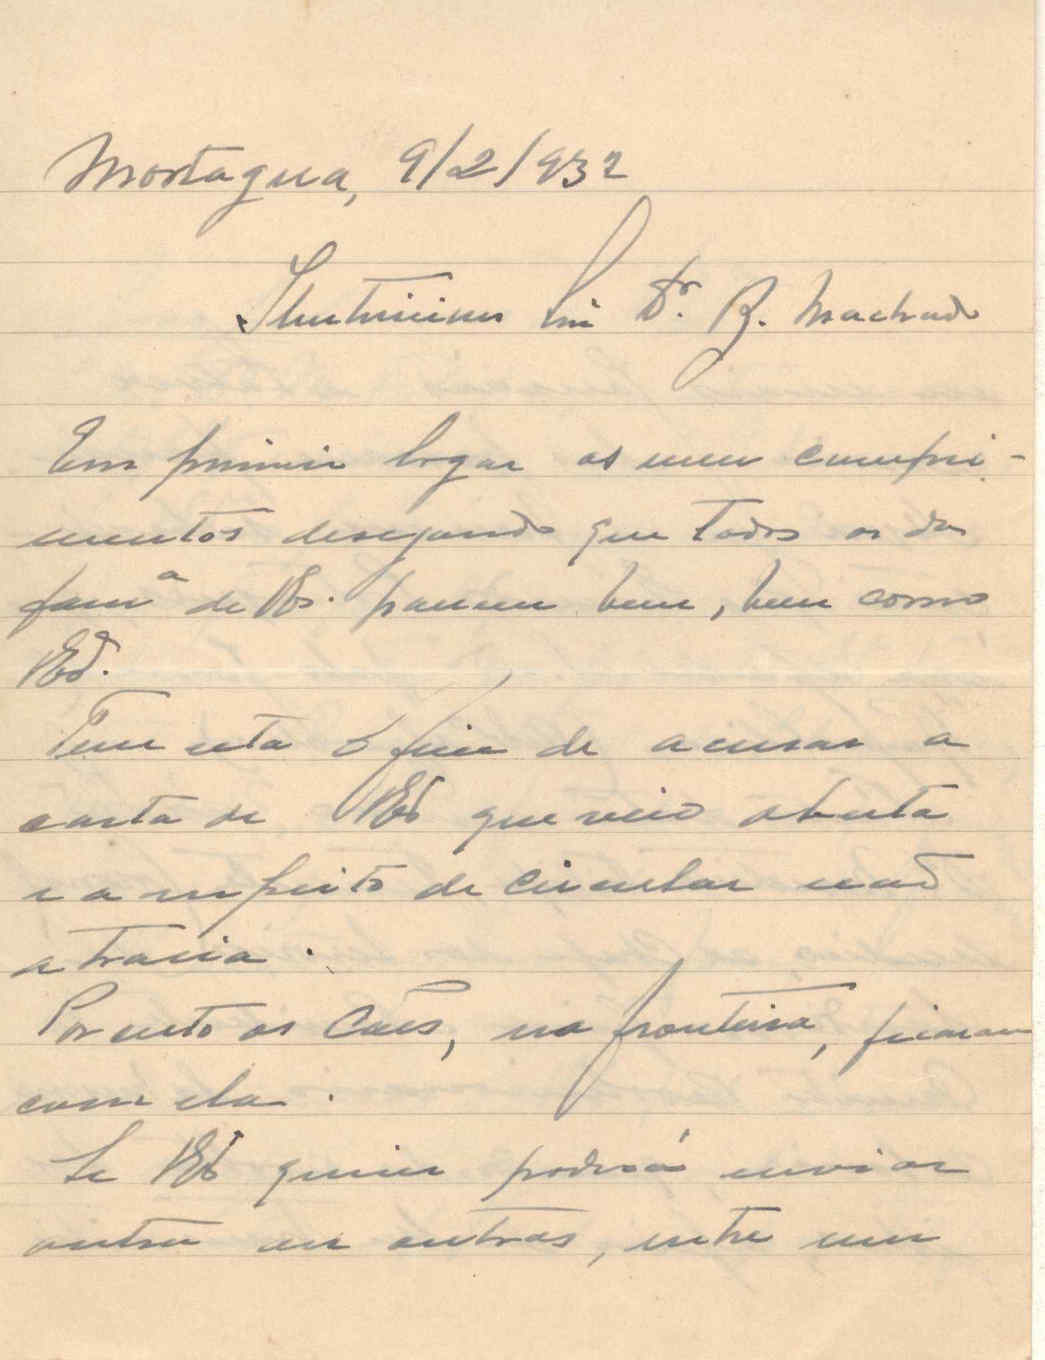 Mortagua, 9/2/932
Illustrissimo Snr Dr. B. Machado
Em primeiro logar os meus cumpri-
mentos desejando que todos os da
fama de VEx. passem bem, bem como
VEx.
Tem esta o fim de acusar a
carta de VEx que veio aberta
e a respeito de circular não
a trazia.
Por certo os Cães, na fronteira, ficaram
com ela.
Se VEx quiser poderá enviar
outra ou outras, entre um